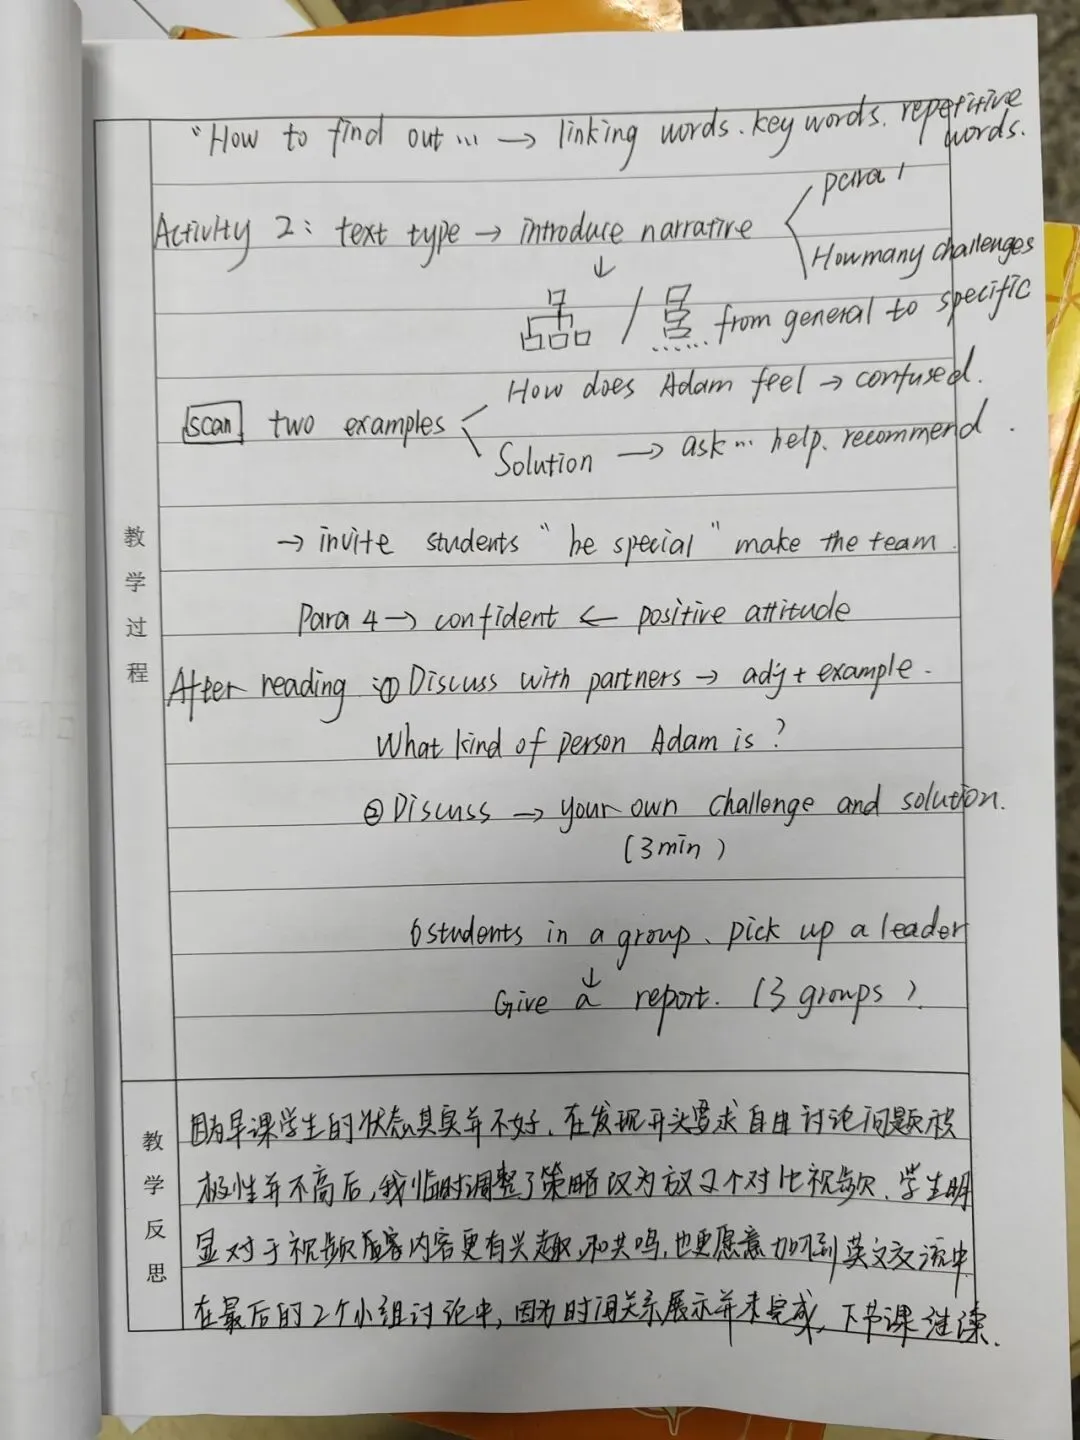 "How to find out ... → linking words. key words. repetitive words.
Activity 2: text type → introduce narrative
para 1
How many challenges
↓
/ from general to specific
How does Adam feel → confused.
scan two examples
Solution → ask... help. recommend.
→ invite students "be special" make the team.
Para 4 → confident ← positive attitude
After reading: ① Discuss with partners → adj + example.
What kind of person Adam is?
② Discuss → your own challenge and solution.
(3 min)
6 students in a group. pick up a leader
↓
Give a report. (3 groups).
教学过程
教学反思
因为早课学生的状态其实并不好、在发现开头要求自由讨论问题积
极性并不高后,我临时调整了策略改为放2个对比视频、学生明
显对于视频内容更有兴趣和共鸣,也更愿意加入到英文交流中
在最后的2个小组讨论中,因为时间关系展示并未完成,下节课继续.